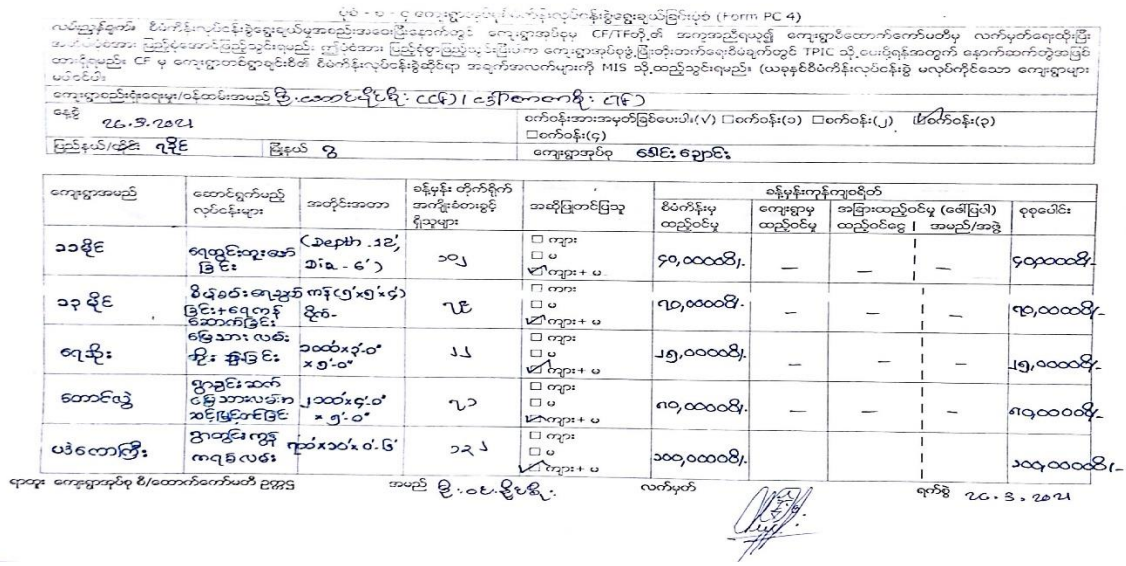 ပုံစံ - ပ - ၄ ကျေးရွာအုပ်စုစီမံကိန်းလုပ်ငန်းခွဲရွေးချယ်ခြင်းပုံစံ (Form PC 4)
လမ်းညွှန်ချက်။ စီမံကိန်းလုပ်ငန်းခွဲရွေးချယ်မှုအစည်းအဝေးပြီးနောက်တွင် ကျေးရွာအုပ်စုမှ CF/TFတို့၏ အကူအညီရယူ၍ ကျေးရွာစီထောက်ကော်မတီမှ လက်မှတ်ရေးထိုးပြီး
ပြည့်စုံအောင်ဖြည့်သွင်းရမည်။ ဤပုံစံအား ပြည့်စုံစွာဖြည့်သွင်းပြီးပါက ကျေးရွာအုပ်စုဖွံ့ဖြိုးတိုးတက်ရေးစီမံချက်တွင် TPIC သို့ပေးပို့ရန်အတွက် နောက်ဆက်တွဲအဖြစ်
ထားရှိရမည်။ CF မှ ကျေးရွာတစ်ရွာချင်းစီ၏ စီမံကိန်းလုပ်ငန်းခွဲဆိုင်ရာ အချက်အလက်များကို MIS သို့ထည့်သွင်းရမည်။ (ယခုနှစ်စီမံကိန်းလုပ်ငန်းခွဲ မလုပ်ကိုင်သော ကျေးရွာများ
မပါဝင်ပါ။
ကျေးရွာစည်းရုံးရေးမှူး/ဝန်ထမ်းအမည် (CF) / (TF)
နေ့စွဲ 26.3.2021 စက်ဝန်းအားအမှတ်ခြစ်ပေးပါ။(√) □စက်ဝန်း(၁) □စက်ဝန်း(၂) ☑စက်ဝန်း(၃)
□စက်ဝန်း(၄)
ပြည်နယ်/တိုင်း ရခိုင် မြို့နယ် ဂွ ကျေးရွာအုပ်စု ခေါင်းချောင်း
ကျေးရွာအမည် ဆောင်ရွက်မည့် လုပ်ငန်းများ အတိုင်းအတာ ခန့်မှန်း တိုက်ရိုက် အကျိုးခံစားခွင့် ရှိသူများ အဆိုပြုတင်ပြသူ ခန့်မှန်းကုန်ကျစရိတ်
စီမံကိန်းမှ ထည့်ဝင်မှု ကျေးရွာမှ ထည့်ဝင်မှု အခြားထည့်ဝင်မှု (ဖော်ပြပါ) ထည့်ဝင်ငွေ | အမည်/အဖွဲ့ စုစုပေါင်း
၁၁မိုင် ရေတွင်းတူးဖော်ခြင်း (Depth-12', Dia-6') ၁၀၂ □ ကျား □ မ ☑ ကျား+ မ ၄၀,၀၀၀၀၀ိ/. – – – ၄၀,၀၀၀၀၀ိ/-
၁၃မိုင် စိမ့်စမ်းရေသွယ်ခြင်း+ရေကန်ဆောက်ခြင်း ကန်(၅'x၅'x၄') ပိုက်- ၇၄ □ ကျား □ မ ☑ ကျား+ မ ၇၀,၀၀၀၀၀ိ/. – – – ၇၀,၀၀၀၀၀ိ/-
ရေဆိုး မြေသားလမ်းတိုးချဲ့ခြင်း ၁၀၀၀'x၃'-၀" x ၅'-၀" ၂၂ □ ကျား □ မ ☑ ကျား+ မ ၂၅,၀၀၀၀၀ိ/. – – – ၂၅,၀၀၀၀၀ိ/-
တောင်လွဲ ရွာချင်းဆက်မြေသားလမ်းအဆင့်မြှင့်တင်ခြင်း ၂၁၀၀'x၄'-၀" x ၅'-၀" ၇၁ □ ကျား □ မ ☑ ကျား+ မ ၈၀,၀၀၀၀၀ိ/. – – – ၈၀,၀၀၀၀၀ိ/-
ပဒဲကောကြီး ရွာတွင်းကွန်ကရစ်လမ်း ၇၀၀'x၁၀'x၀'-၆" ၁၃၂ □ ကျား □ မ ☑ ကျား+ မ ၁၀၀,၀၀၀၀၀ိ/. ၁၀၀,၀၀၀၀၀ိ/-
ရာထူး ကျေးရွာအုပ်စု စီ/ထောက်ကော်မတီ ဥက္ကဋ္ဌ အမည် လက်မှတ် ရက်စွဲ 26.3.2021